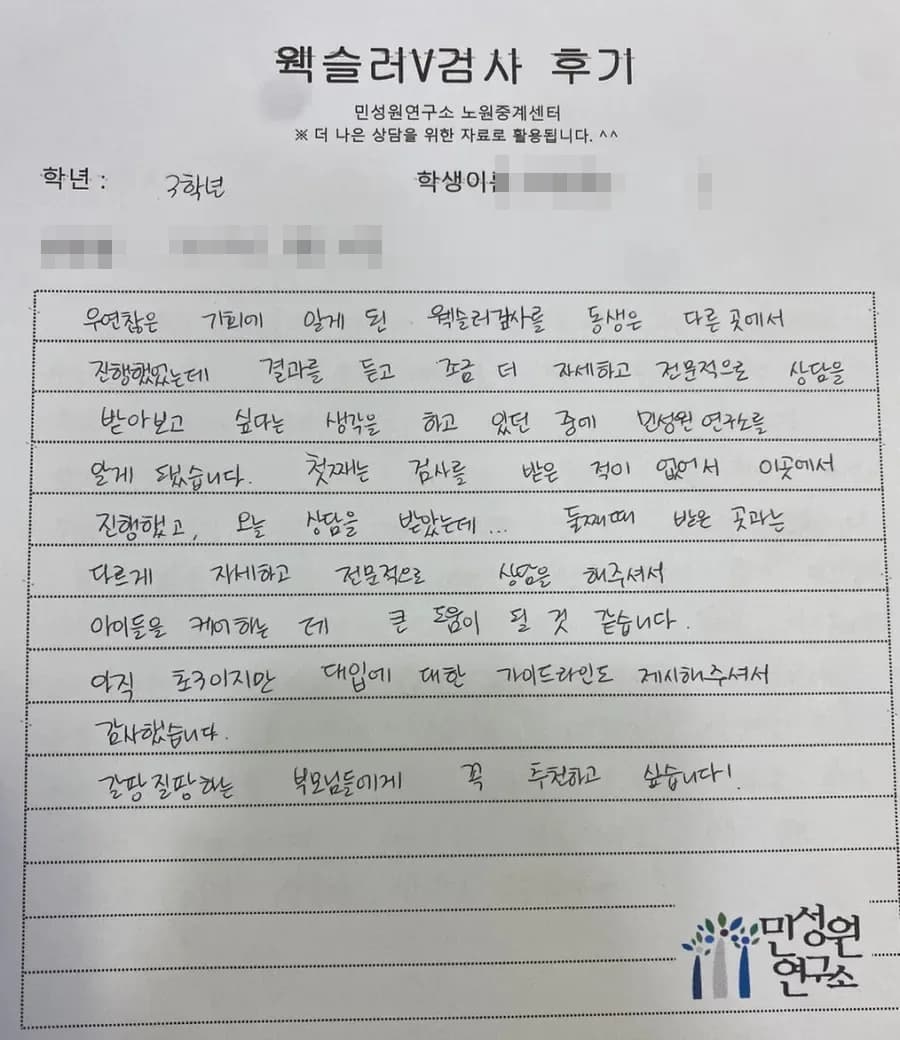 웩슬러V검사 후기
민성원연구소 노원중계센터
※ 더 나은 상담을 위한 자료로 활용됩니다. ^^
학년 : 3학년 학생이
우연찮은 기회에 알게 된 웩슬러검사를 동생은 다른 곳에서
진행했었는데 결과를 듣고 조금 더 자세하고 전문적으로 상담을
받아보고 싶다는 생각을 하고 있던 중에 민성원 연구소를
알게 됐습니다. 첫째는 검사를 받은 적이 없어서 이곳에서
진행했고, 오늘 상담을 받았는데... 둘째때 받은 곳과는
다르게 자세하고 전문적으로 상담을 해주셔서
아이들을 케어하는 데 큰 도움이 될 것 같습니다.
아직 초3이지만 대입에 대한 가이드라인도 제시해주셔서
감사했습니다.
갈팡질팡하는 부모님들에게 꼭 추천하고 싶습니다!
민성원
연구소